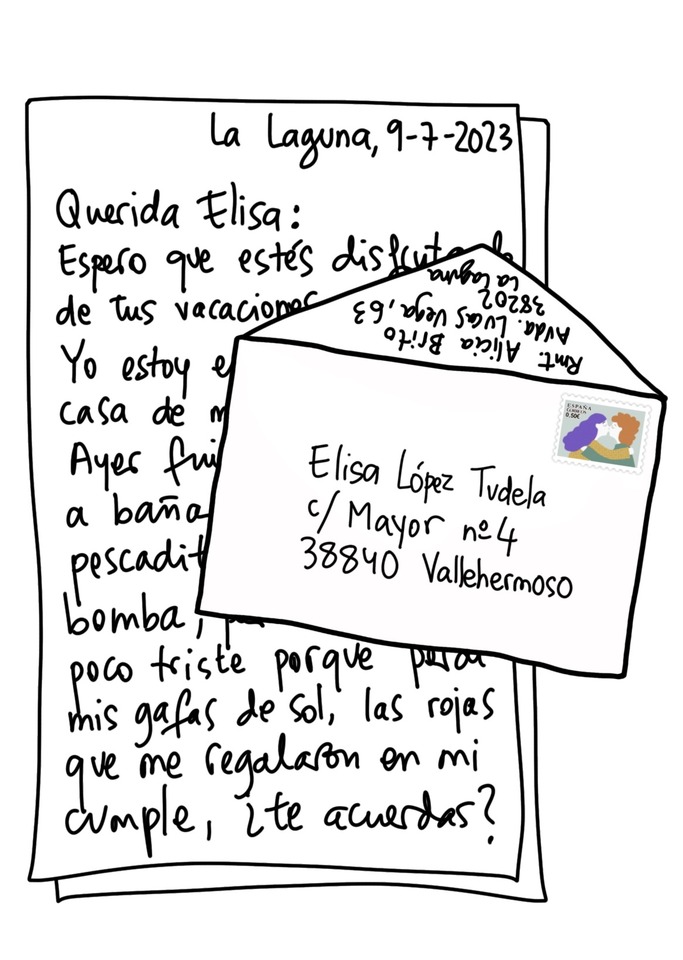 La Laguna, 9-7-2023
Querida Elisa:
Espero que estés
de tus vacaciones
Yo estoy
casa de
Ayer
a
bomba,
poco triste porque
mis gafas de sol, las rojas
que me regalaron en mi
cumple, ¿te acuerdas?
Rmt. Alicia Brito
Avda. Lucas Vega, 63
38202
La Laguna
ESPAÑA
CORREOS
0,50€
Elisa López Tudela
c/ Mayor nº 4
38840 Vallehermoso